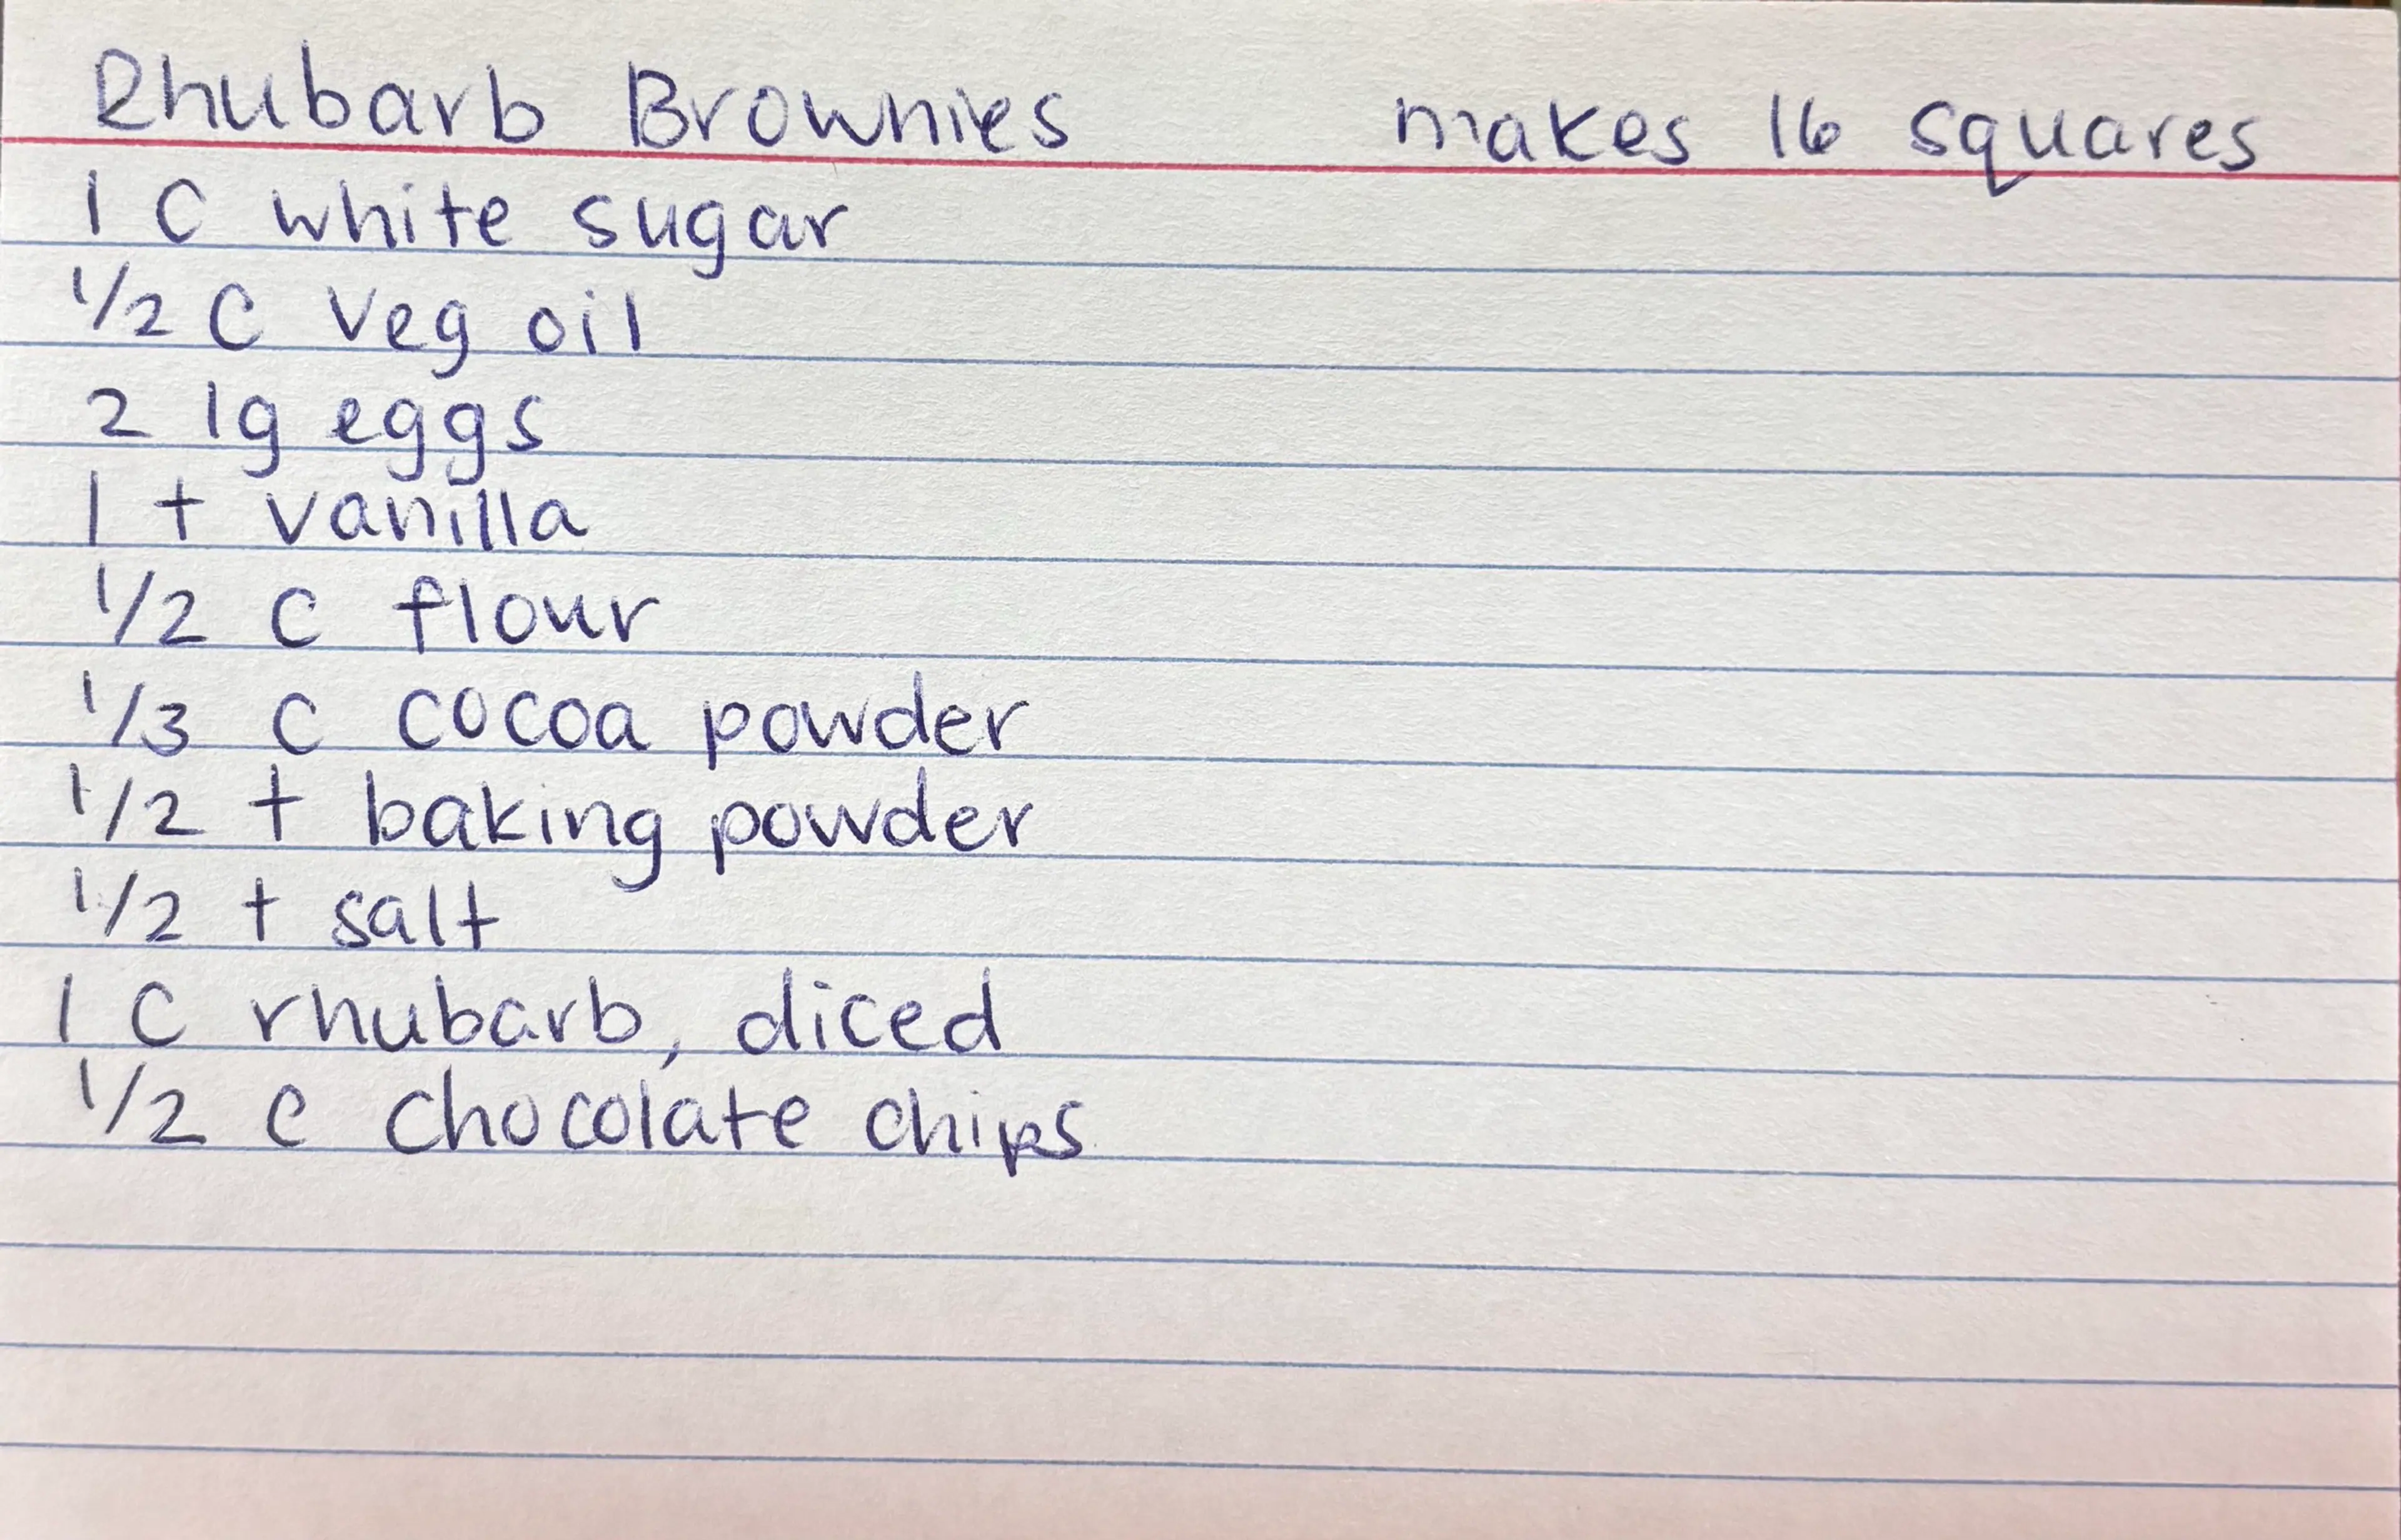 Rhubarb Brownies makes 16 squares
1 C white sugar
1/2 C veg oil
2 lg eggs
1 t vanilla
1/2 C flour
1/3 C cocoa powder
1/2 t baking powder
1/2 t salt
1 C rhubarb, diced
1/2 C chocolate chips